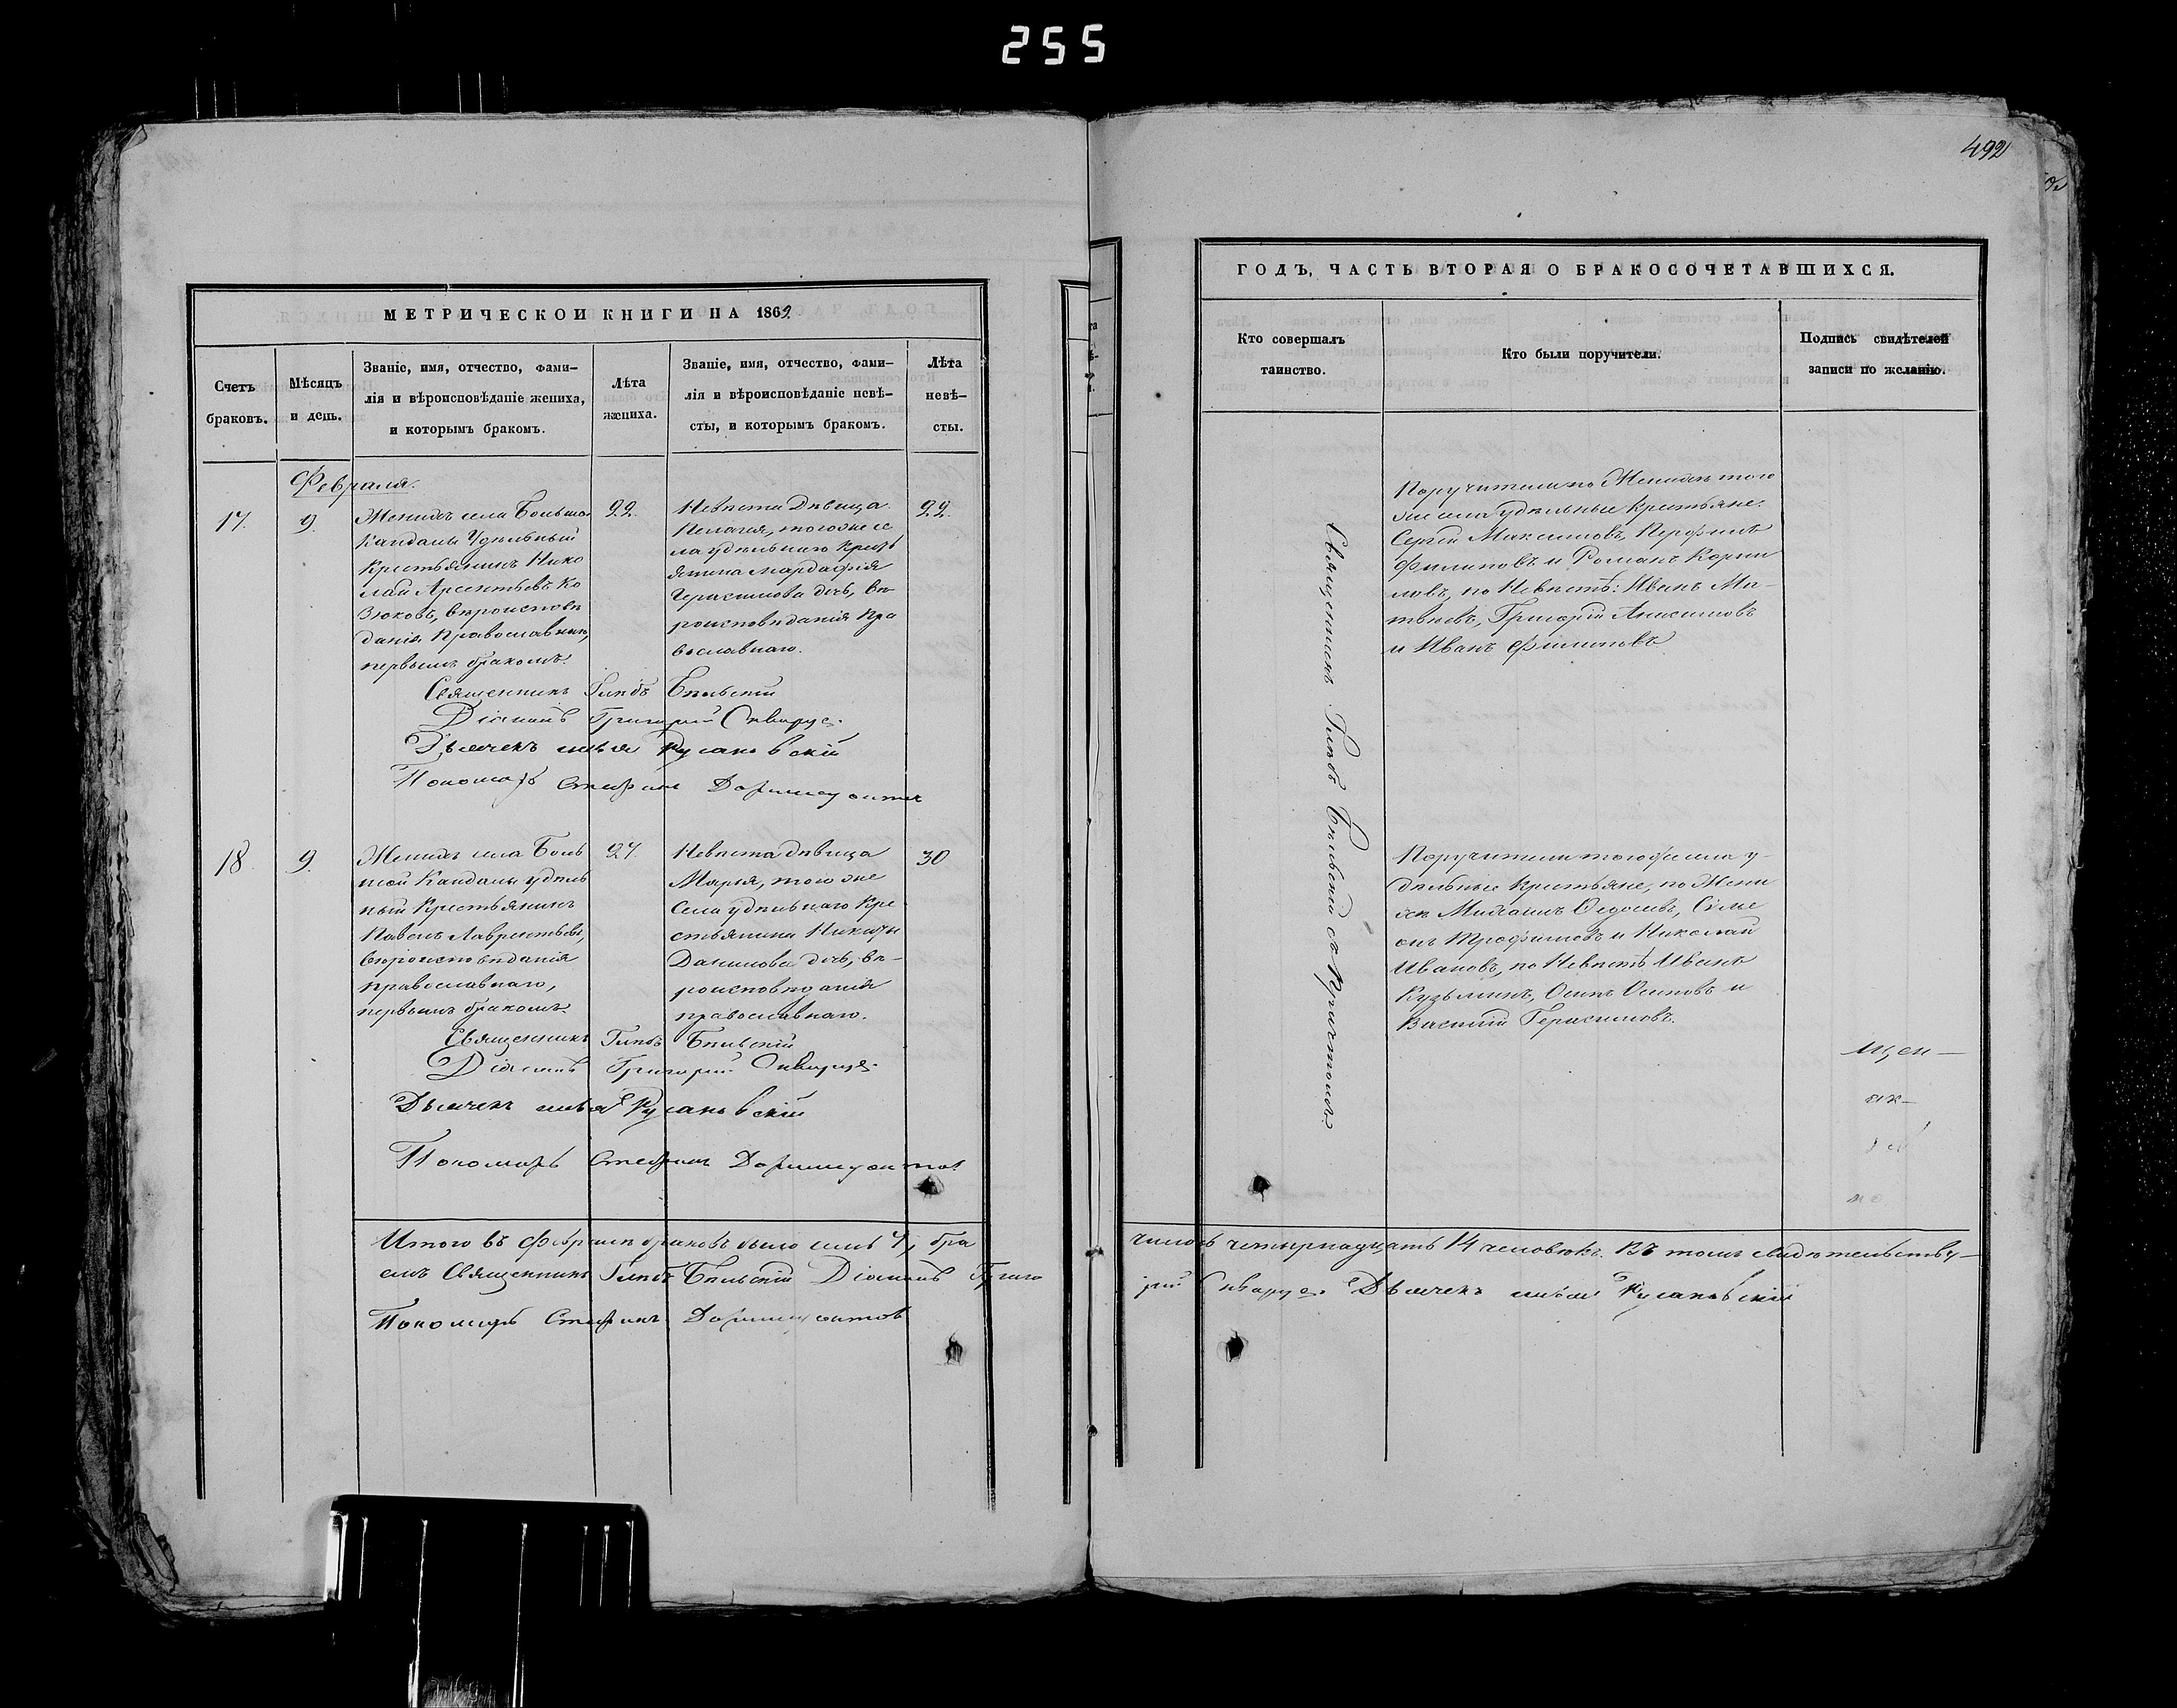 255
492
МЕТРИЧЕСКОЙ КНИГИ НА 1862
Счетъ браковъ.
Мѣсяцъ и день.
Званіе, имя, отчество, фами-
лія и вѣроисповѣданіе жениха,
и которымъ бракомъ.
Лѣта жениха.
Званіе, имя, отчество, фами-
лія и вѣроисповѣданіе невѣ-
сты, и которымъ бракомъ.
Лѣта невѣ-
сты.
Февраля.
17.
9.
Женихъ села Большой
Кандалы Удѣльный
Крестьянинъ Нико
лай Арсентьевъ Ко
зюковъ, вѣроисповѣ
данія Православнаго,
первымъ бракомъ.
22.
Невѣста Дѣвица
Пелагия, того же се
ла удѣльнаго Кресть
янина Мардафія
Герасимова дочь, вѣ
роисповѣданія Пра
вославнаго.
22.
Священникъ Глѣбъ Бѣльскій
Діаконъ Григорій
Дьячекъ Илья Русановскій
Пономарь Стефанъ
18.
9.
Женихъ села Боль
шой Кандалы удѣль
ный Крестьянинъ
Павелъ Лаврентьевъ,
вѣроисповѣданія
православнаго,
первымъ бракомъ.
27.
Невѣста дѣвица
Марья, того же
Села удѣльнаго Кре
стьянина Никиты
Данилова дочь, вѣ-
роисповѣданія
православнаго.
30
Священникъ Глѣбъ Бѣльскій
Діаконъ Григорій
Дьячекъ Илья Русановскій
Пономарь Стефанъ
Итого въ Февралѣ браковъ было семь 7, бра
емъ Священникъ Глѣбъ Бѣльскій Діаконъ Григо
Пономарь Стефанъ
ГОДЪ, ЧАСТЬ ВТОРАЯ О БРАКОСОЧЕТАВШИХСЯ.
Кто совершалъ
таинство.
Кто были поручители.
Подпись свидѣтелей
записи по желанію.
Священникъ Глѣбъ Бѣльскій съ Причтомъ
Поручители по Женихѣ того
же села удѣльные Крестьяне.
Сергѣй Максимовъ, Перфилъ
Филиповъ и Романъ Корни
ловъ, по Невѣстѣ: Иванъ Ма-
твѣевъ, Григорій Анисимовъ
и Иванъ Филиповъ
Поручители того же села у-
дѣльные крестьяне, по Жени
хѣ Михаилъ Федосѣевъ, Симе
онъ Трофимовъ и Николай
Ивановъ, по Невѣстѣ Иванъ
Кузьминъ, Осипъ Осиповъ и
Василій Герасимовъ.
щен-
ак-
но
чися четырнадцать 14 человѣкъ. Въ томъ свидѣтельству-
рій Дьячекъ Илья Русановскій